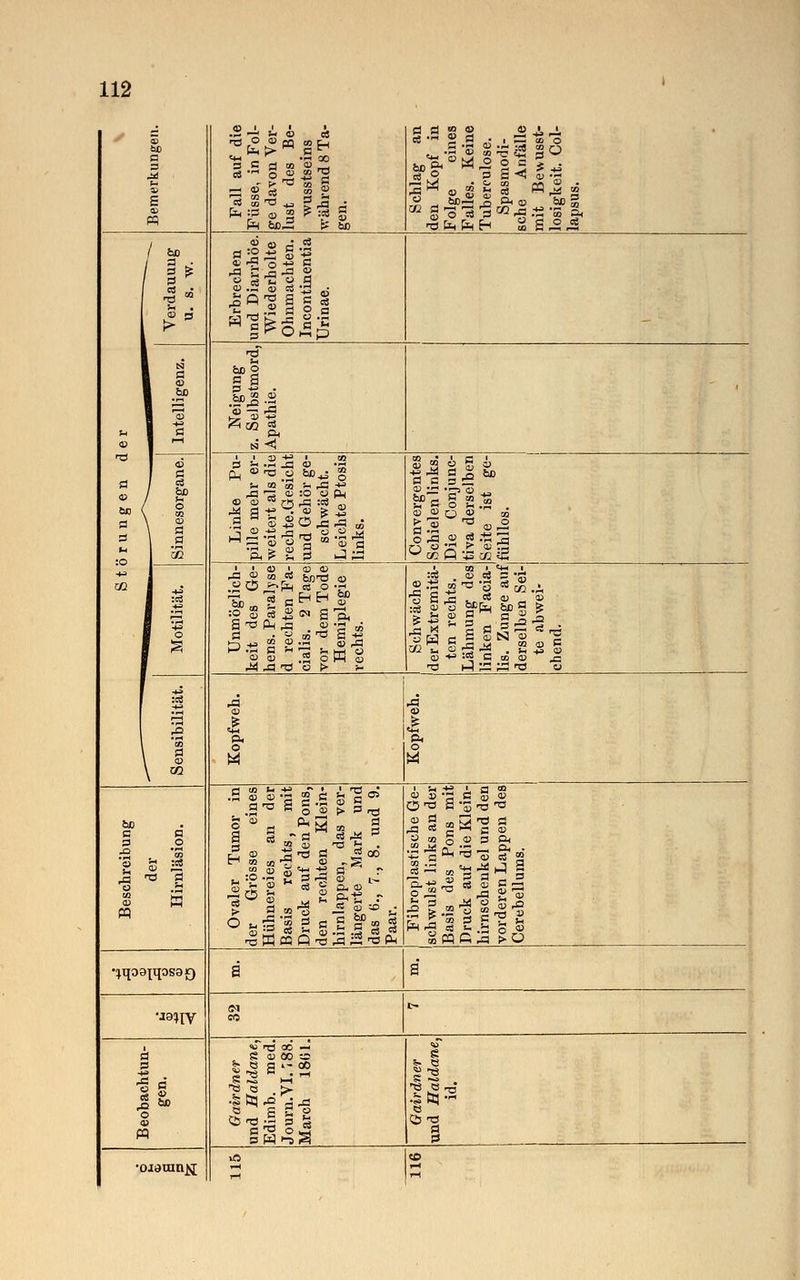 112
Numero.
Beobachtun-
gen.
Alter.
Geschlecht.
Beschreibung
der
Hirnläsion.
Störungen der
Sensibilität.
Motilität.
Sinnesorgane.
Intelligenz.
Verdauung
u. s. w.
Bemerkungen.
115
Gairdner
und Haldane,
Edimb. med.
Journ. VI. 788.
March 1861.
32
m.
Ovaler Tumor in
der Grösse eines
Hühnereies an der
Basis rechts, mit
Druck auf den Pons,
den rechten Klein-
hirnlappen, das ver-
längerte Mark und
das 6., 7., 8. und 9.
Paar.
Kopfweh.
Unmöglich-
keit des Ge-
hens. Paralyse
d rechten Fa-
cialis. 2 Tage
vor dem Tode
Hemiplegie
rechts.
Linke Pu-
pille mehr er-
weitert als die
rechte. Gesicht
und Gehör ge-
schwächt.
Leichte Ptosis
links.
Neigung
z. Selbstmord,
Apathie.
Erbrechen
und Diarrhöe.
Wiederholte
Ohnmachten.
Incontinentia
Urinae.
Fall auf die
Füsse, in Fol-
ge davon Ver-
lust des Be-
wusstseins
während 8 Ta-
gen.
116
Gairdner
und Haldane,
id.
7
m.
Fibroplastische Ge-
schwulst links an der
Basis des Pons mit
Druck auf die Klein-
hirnschenkel und den
vorderen Lappen des
Cerebellums.
Kopfweh.
Schwäche
der Extremitä-
ten rechts.
Lähmung des
linken Facia-
lis. Zunge auf
derselben Sei-
te abwei-
chend.
Convergentes
Schielen links.
Die Conjunc-
tiva derselben
Seite ist ge-
fühllos.
Schlag an
den Kopf in
Folge eines
Falles. Keine
Tuberculose.
Spasmodi-
sche Anfälle
mit Bewusst-
losigkeit. Col-
lapsus.